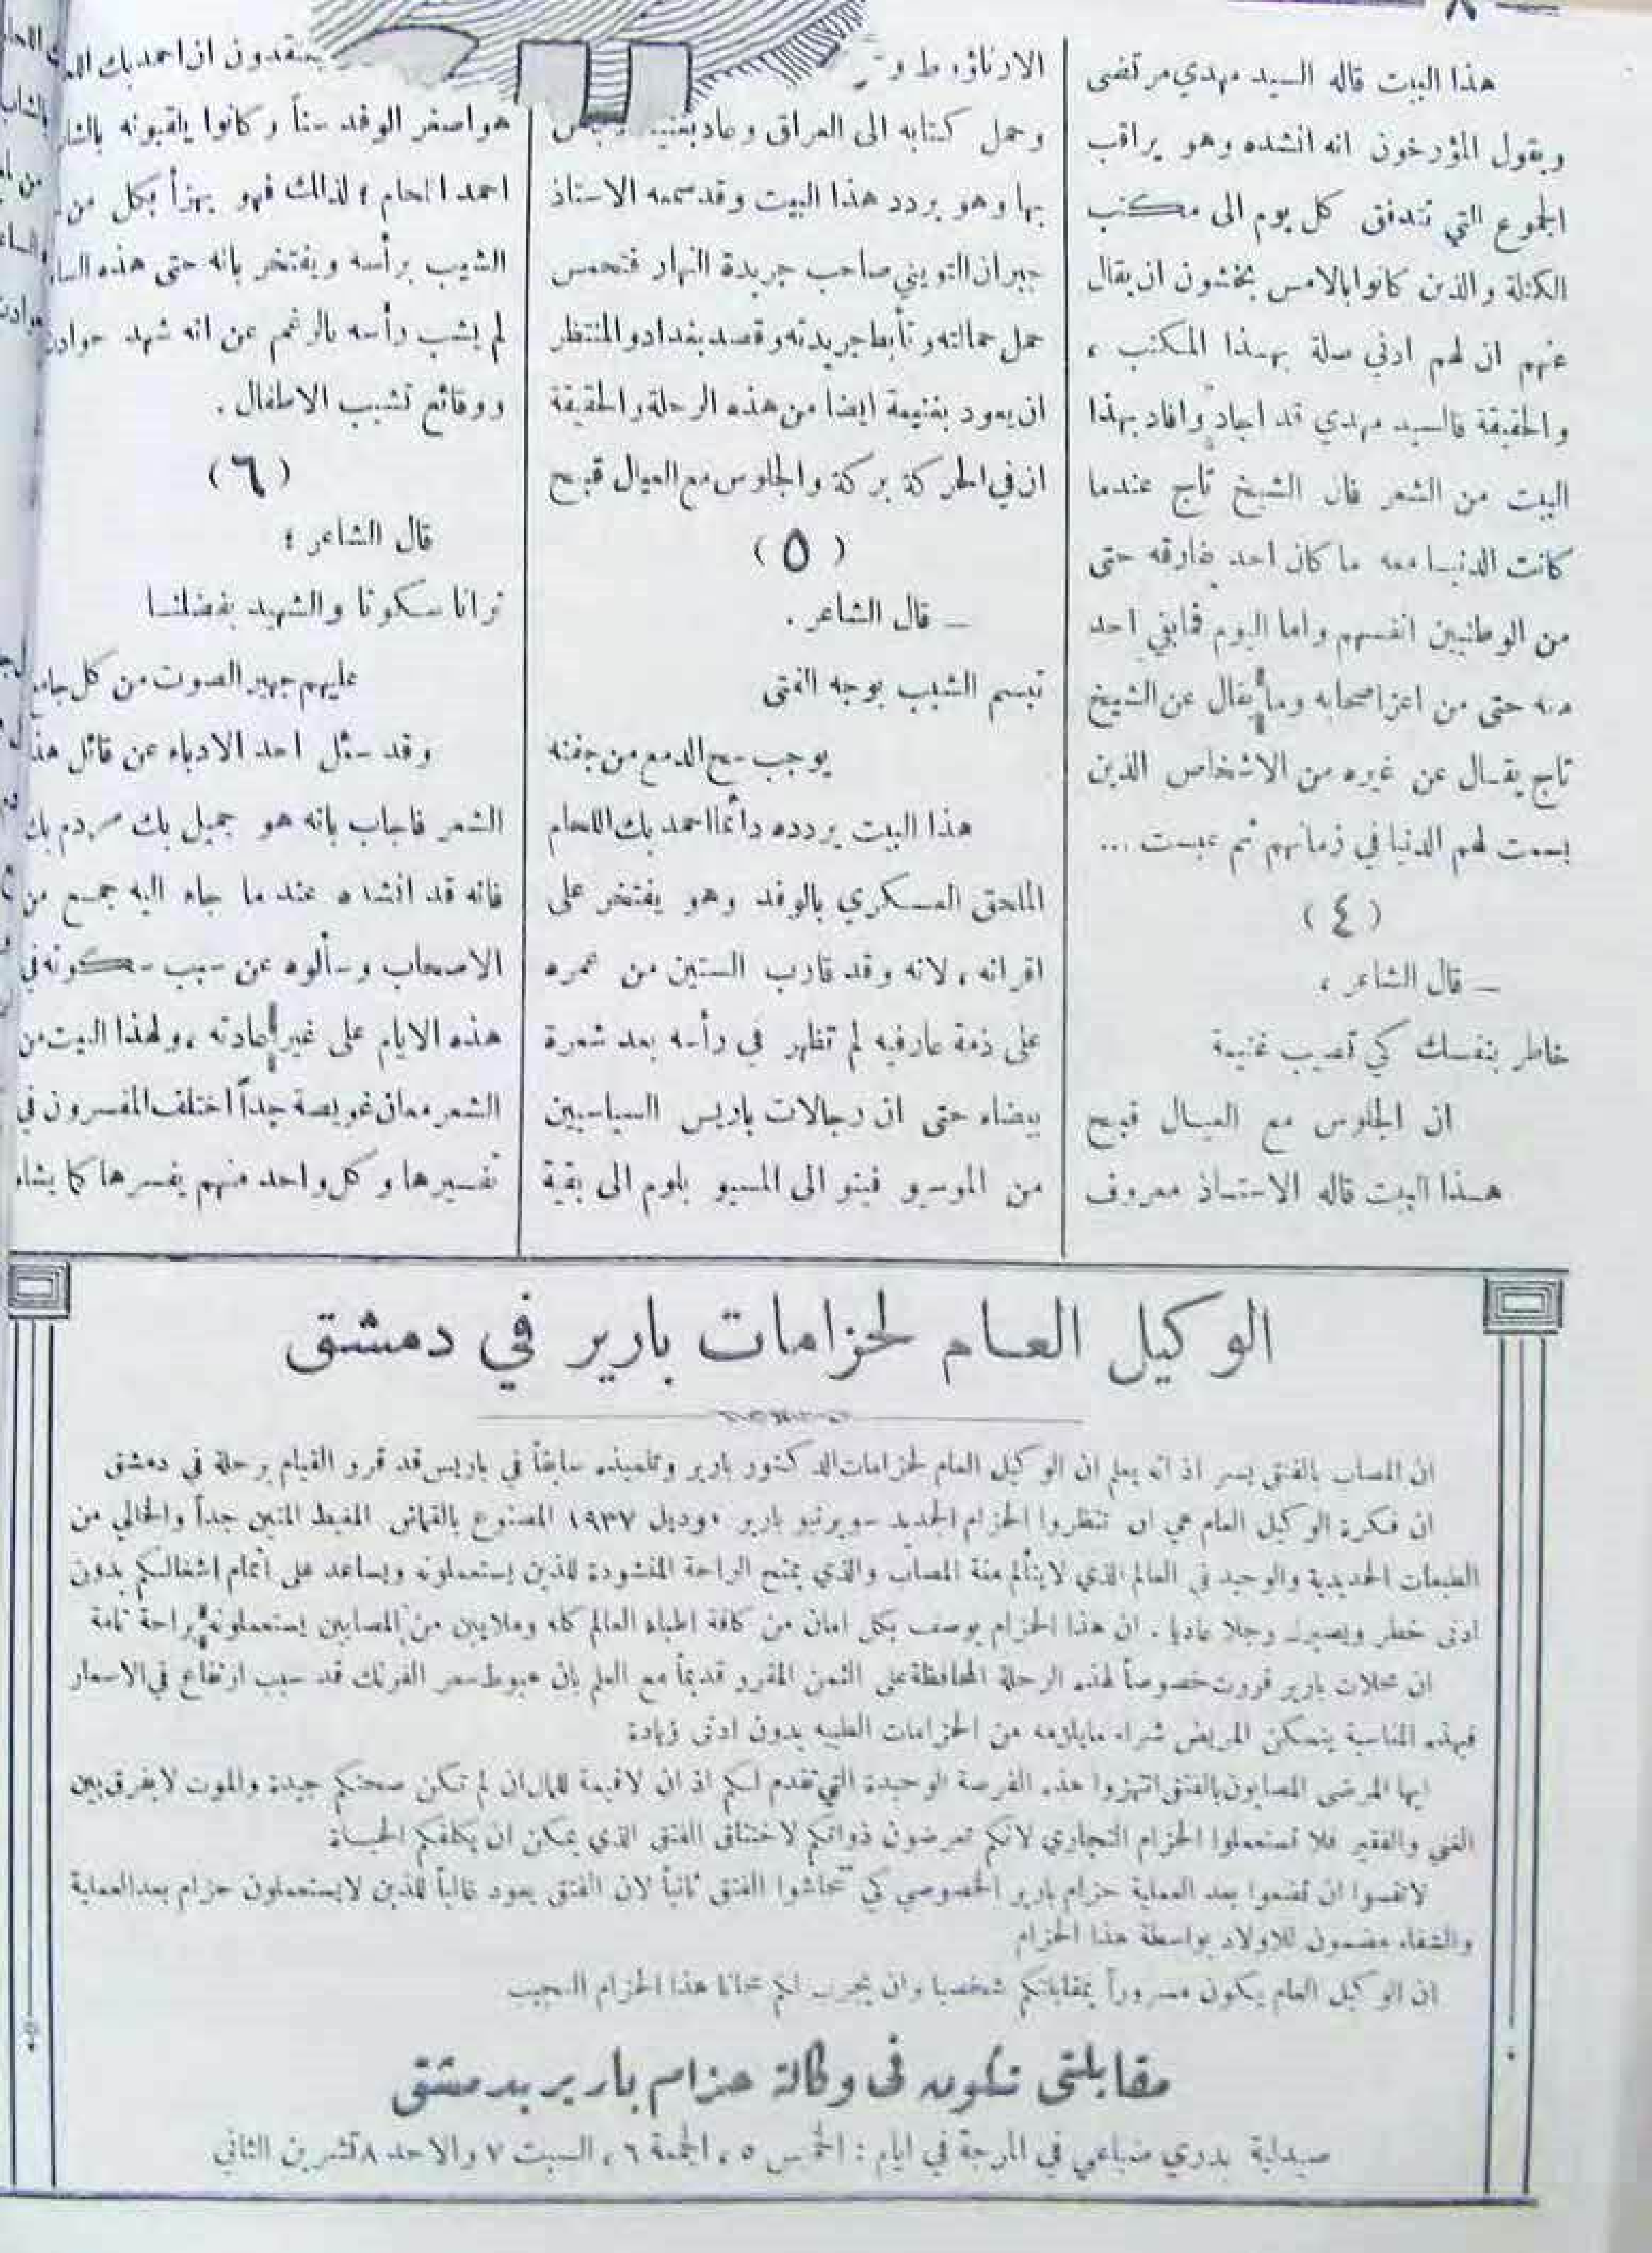 ٨
هذا البيت قاله السيد مهدي مرتضى
ويقول المؤرخون انه انشده وهو يراقب
الجموع التي تتدفق كل يوم الى مكتب
الكتلة والذين كانوا بالامس يخشون ان يقال
عنهم ان لهم ادنى صلة بهذا المكتب ،
والحقيقة فالسيد مهدي قد اجاد وافاد بهذا
البيت من الشعر فان الشيخ تاج عندما
كانت الدنيا معه ما كان احد يفارقه حتى
من الوطنيين انفسهم واما اليوم فما بقي احد
معه حتى من اعز اصحابه وما يقال عن الشيخ
تاج يقال عن غيره من الاشخاص الذين
بسمت لهم الدنيا في زمانهم ثم عبست ...
(٤)
ــ قال الشاعر ،
خاطر بنفسك كي تصيب غنيمة
ان الجلوس مع العيال قبيح
هذا البيت قاله الاستاذ معروف
الارناؤوط
وحمل كتابه الى العراق وعاد بغنيمة
بها وهو يردد هذا البيت وقد سمعه الاستاذ
جبران التويني صاحب جريدة النهار فتحمس
حمل حمالته وتأبط جريدته وقصد بغداد والمنتظر
ان يعود بغنيمة ايضا من هذه الرحلة والحقيقة
ان في الحركة بركة والجلوس مع العيال قبيح
(٥)
ــ قال الشاعر .
تبسم الشيب بوجه الفتى
يوجب سح الدمع من جفنه
هذا البيت يردده دائما احمد بك اللحام
الملحق العسكري بالوفد وهو يفتخر على
اقرانه ، لانه وقد قارب الستين من عمره
على ذمة عارفيه لم تظهر في رأسه بعد شعرة
بيضاء حتى ان رجالات باريس السياسيين
من الموسيو فينو الى المسيو بلوم الى بقية
يعتقدون ان احمد بك
هو اصغر الوفد سناً وكانوا يلقبونه
احمد اللحام ؛ لذلك فهو يهزأ بكل من
الشيب برأسه ويفتخر بانه حتى هذه
لم يشب رأسه بالرغم عن انه شهد حوادث
ووقائع تشيب الاطفال .
(٦)
قال الشاعر ؛
ترانا سكوتا والشهيد بفضلنا
عليهم جهير الصوت من كل
وقد سئل احد الادباء عن قائل هذا
الشعر فاجاب بانه هو جميل بك مردم بك
فانه قد انشده عند ما جاء اليه جمع من
الاصحاب وسألوه عن سبب سكوته في
هذه الايام على غير عادته ، ولهذا البيت من
الشعر معان غويصة جداً اختلف المفسرون في
تفسيرها وكل واحد منهم يفسرها كما يشاء
الوكيل العام لحزامات بارير في دمشق
ان المصاب بالفتق يسر اذ انه يعلم ان الوكيل العام لحزامات الدكتور بارير وتلميذه سابقاً في باريس قد قرر القيام برحلة في دمشق
ان فكرة الوكيل العام هي ان تنظروا الحزام الجديد سوبرنيو بارير موديل ١٩٣٧ المصنوع بالقماش المغيط المتين جداً والخالي من
الطبعات الحديدية والوحيد في العالم الذي لا يتألم منه المصاب والذي يمنح الراحة المنشودة للذين يستعملونه ويساعد على اتمام اشغالكم بدون
ادنى خطر ويصير رجلا عاديا . ان هذا الحزام يوصف بكل امان من كافة اطباء العالم كله وملايين من المصابين يستعملونه براحة تامة
ان محلات بارير قررت خصوصاً لهذه الرحلة المحافظة على الثمن المقرر قديماً مع العلم بان هبوط سعر الفرنك قد سبب ارتفاع في الاسعار
فبهذه المناسبة يتمكن المريض شراء ما يلزمه من الحزامات الطبيه بدون ادنى زيادة
ايها المرضى المصابون بالفتق انتهزوا هذه الفرصة الوحيدة التي تقدم لكم اذ ان لا قيمة للمال ان لم تكن صحتكم جيدة والموت لا يفرق بين
الغني والفقير فلا تستعملوا الحزام التجاري لانكم تعرضون ذواتكم لاختناق الفتق الذي يمكن ان يكلفكم الحياة
لا تنسوا ان تضعوا بعد العملية حزام بارير الخصوصي كي تحاشوا الفتق ثانياً لان الفتق يعود غالباً للذين لا يستعملون حزام بعد العملية
والشفاء مضمون للاولاد بواسطة هذا الحزام
ان الوكيل العام يكون مسروراً بمقابلتكم شخصيا وان يجرب لكم مجانا هذا الحزام العجيب
مقابلتي تكون في وكالة حزام بارير بدمشق
صيدلية بدري ضباعي في المرجة في ايام : الخميس ٥ ، الجمعة ٦ ، السبت ٧ والاحد ٨ تشرين الثاني